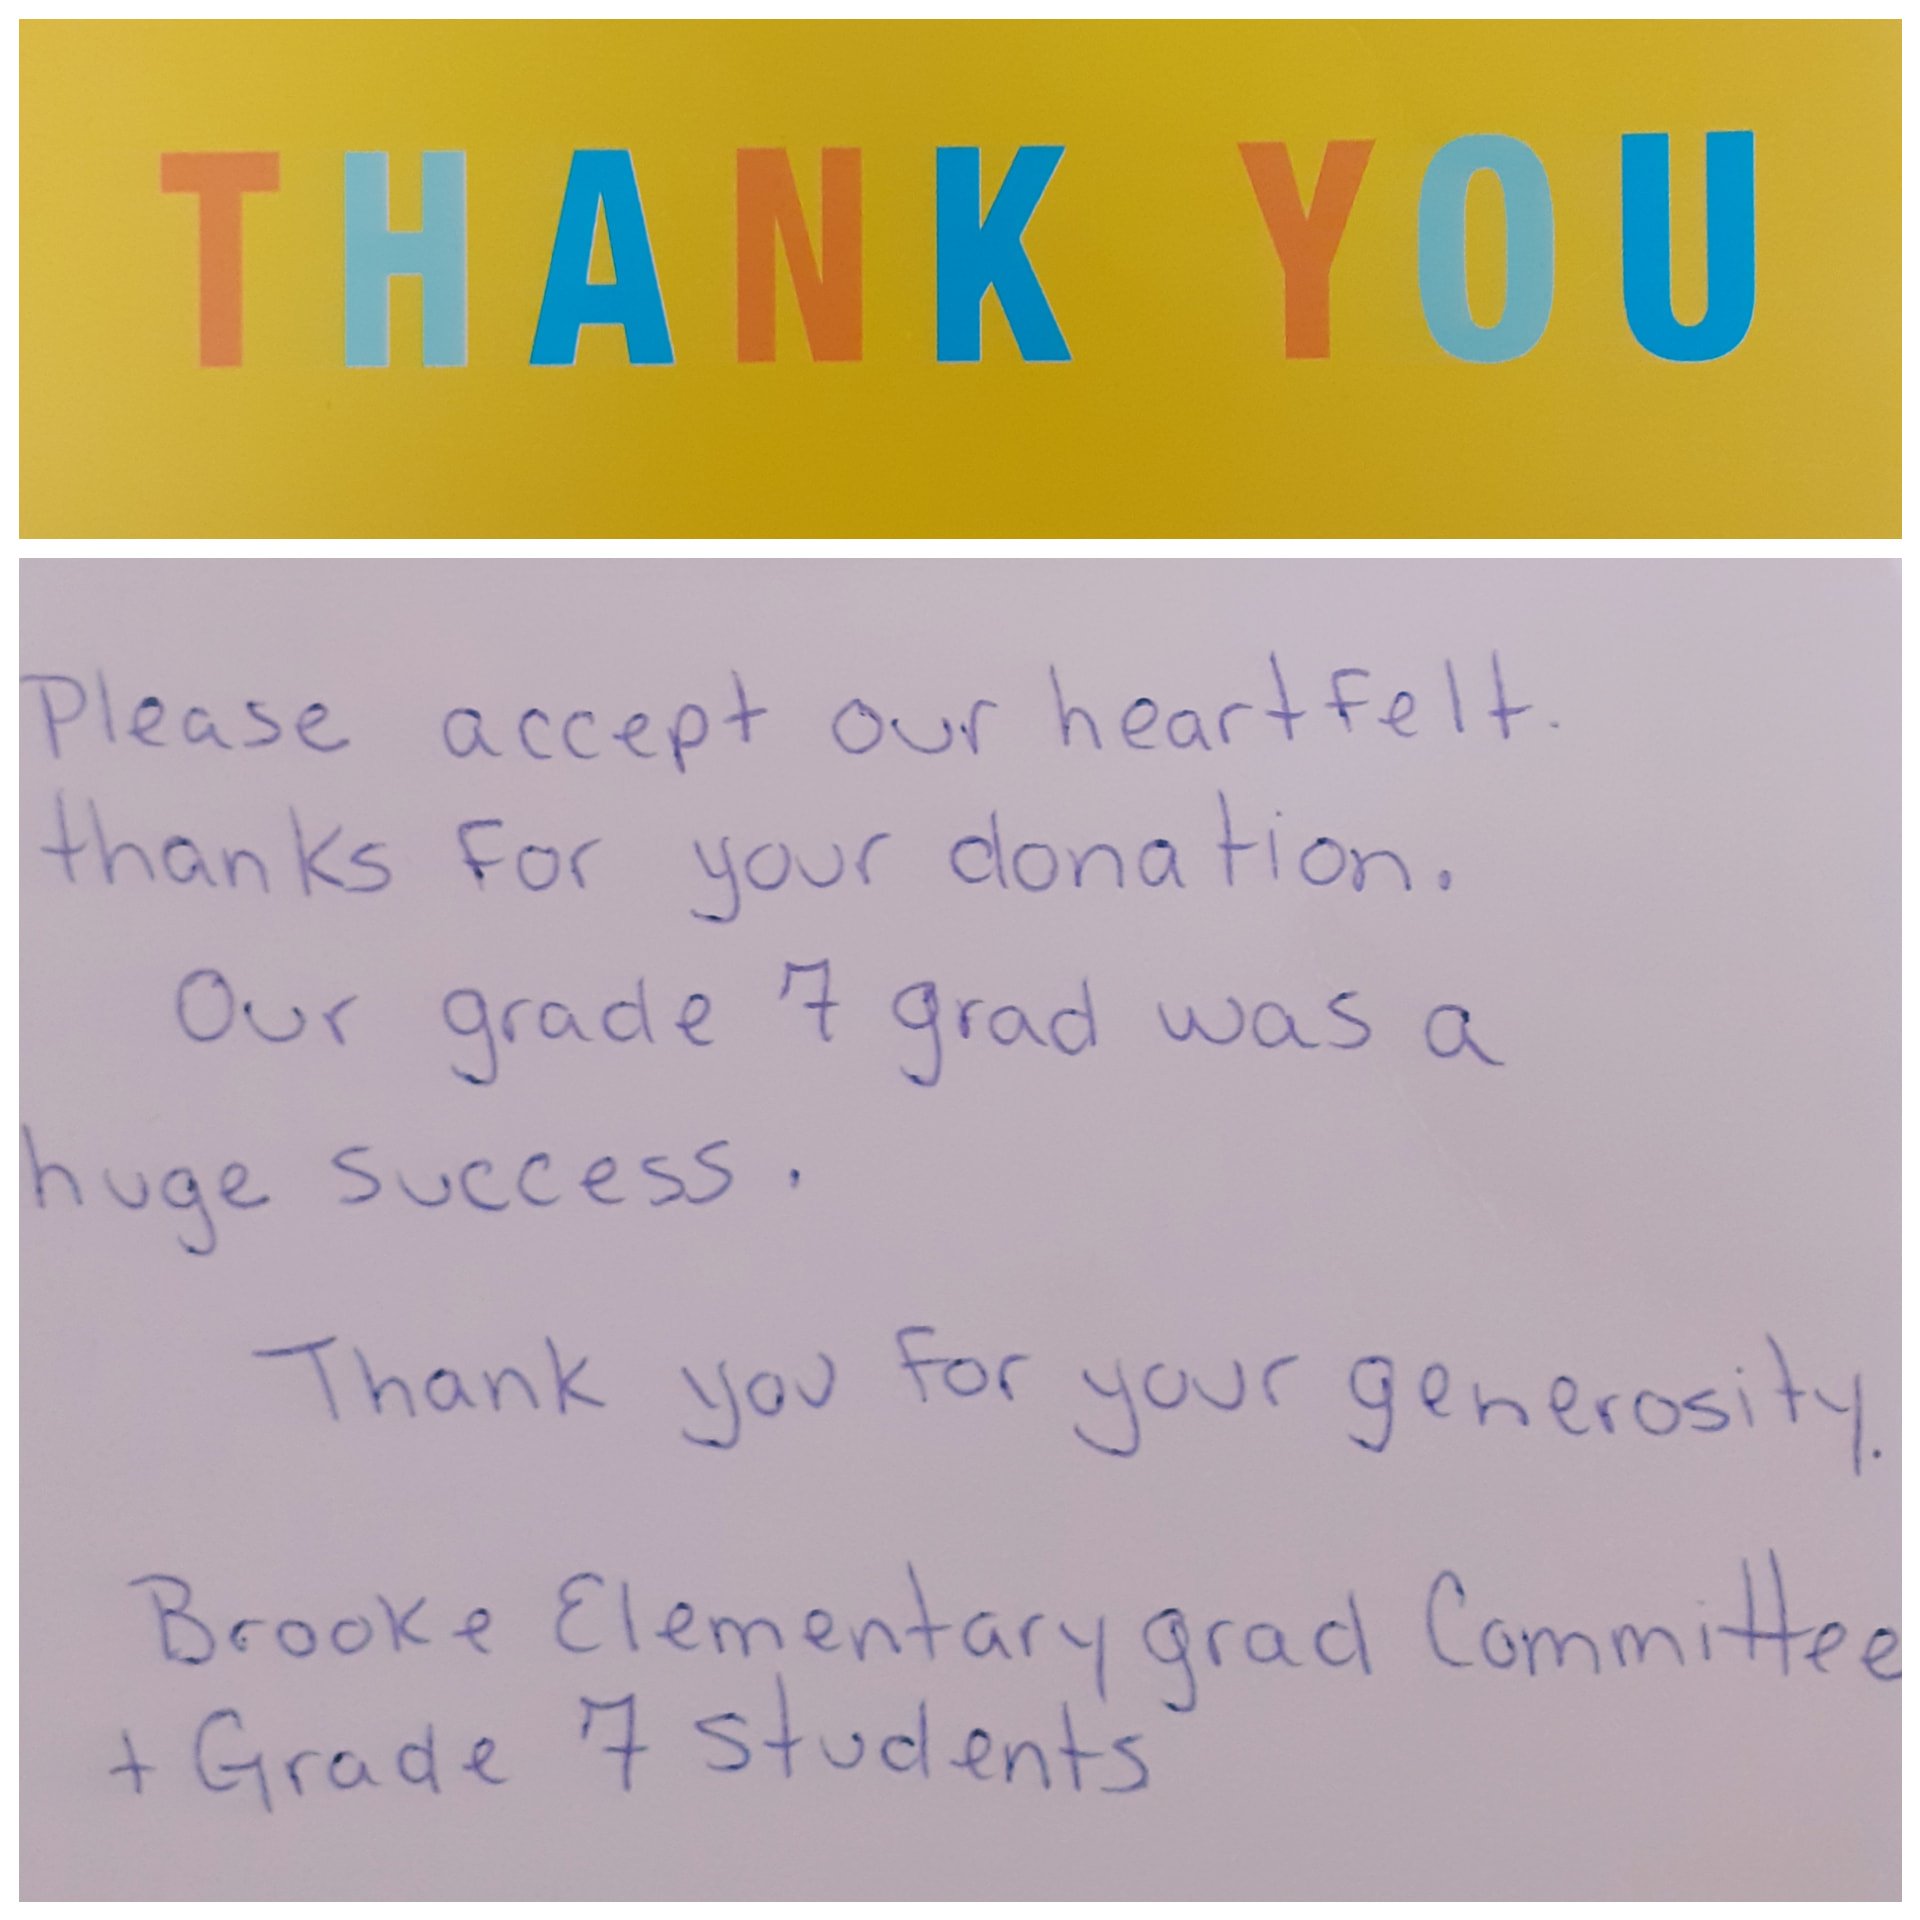 THANK YOU
Please accept our heartfelt.
thanks for your donation.
Our grade 7 grad was a
huge success.
Thank you for your generosity.
Brooke Elementary grad Committee
+ Grade 7 students